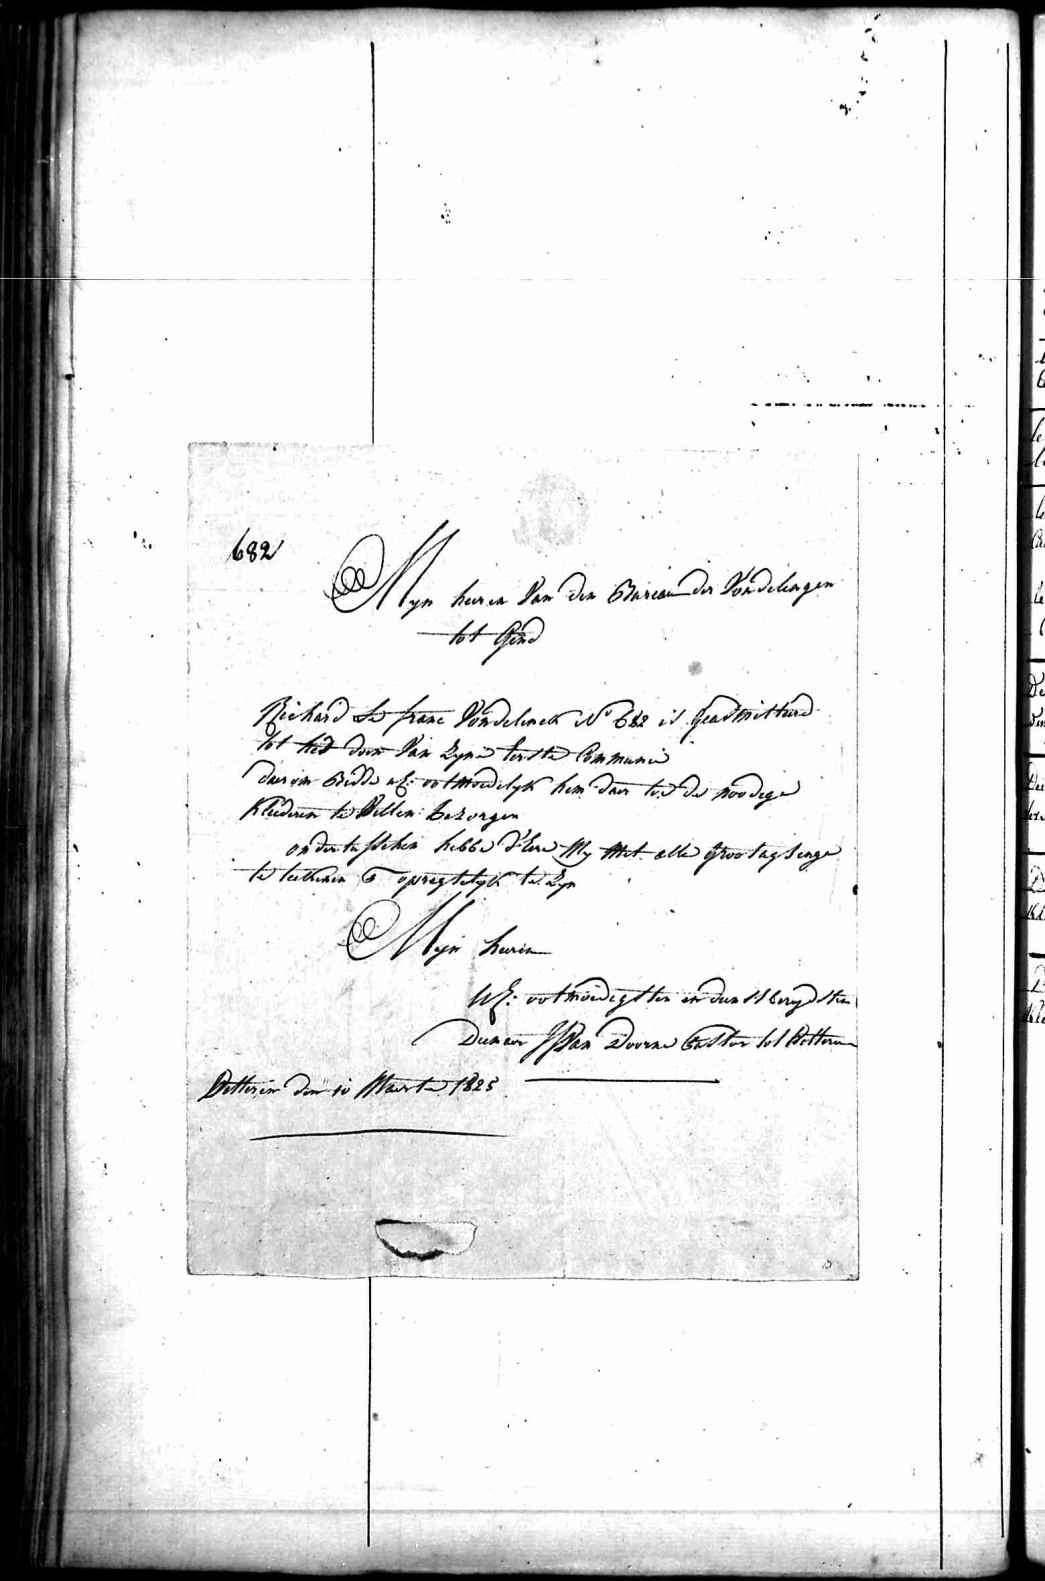 682
Myn heeren Van den Bureau der Vondelingen
tot Gend
Richard Le franc Vondelinck No 682 is geadmitteerd
tot het doen Van Zyne eerste Communie
daerom Bidde UE: ootmoedelyk hem daer toe de noodige
Kleederen te Willen bezorgen
ondertusschen hebbe d'Eere My Met alle
te teekenen opregtelyk te Zyn
Myn heeren
UE: ootmoedigsten en
Dienaer Van Doorne Pastor tot Vetteren
Wetteren den 10 Maerte 1825